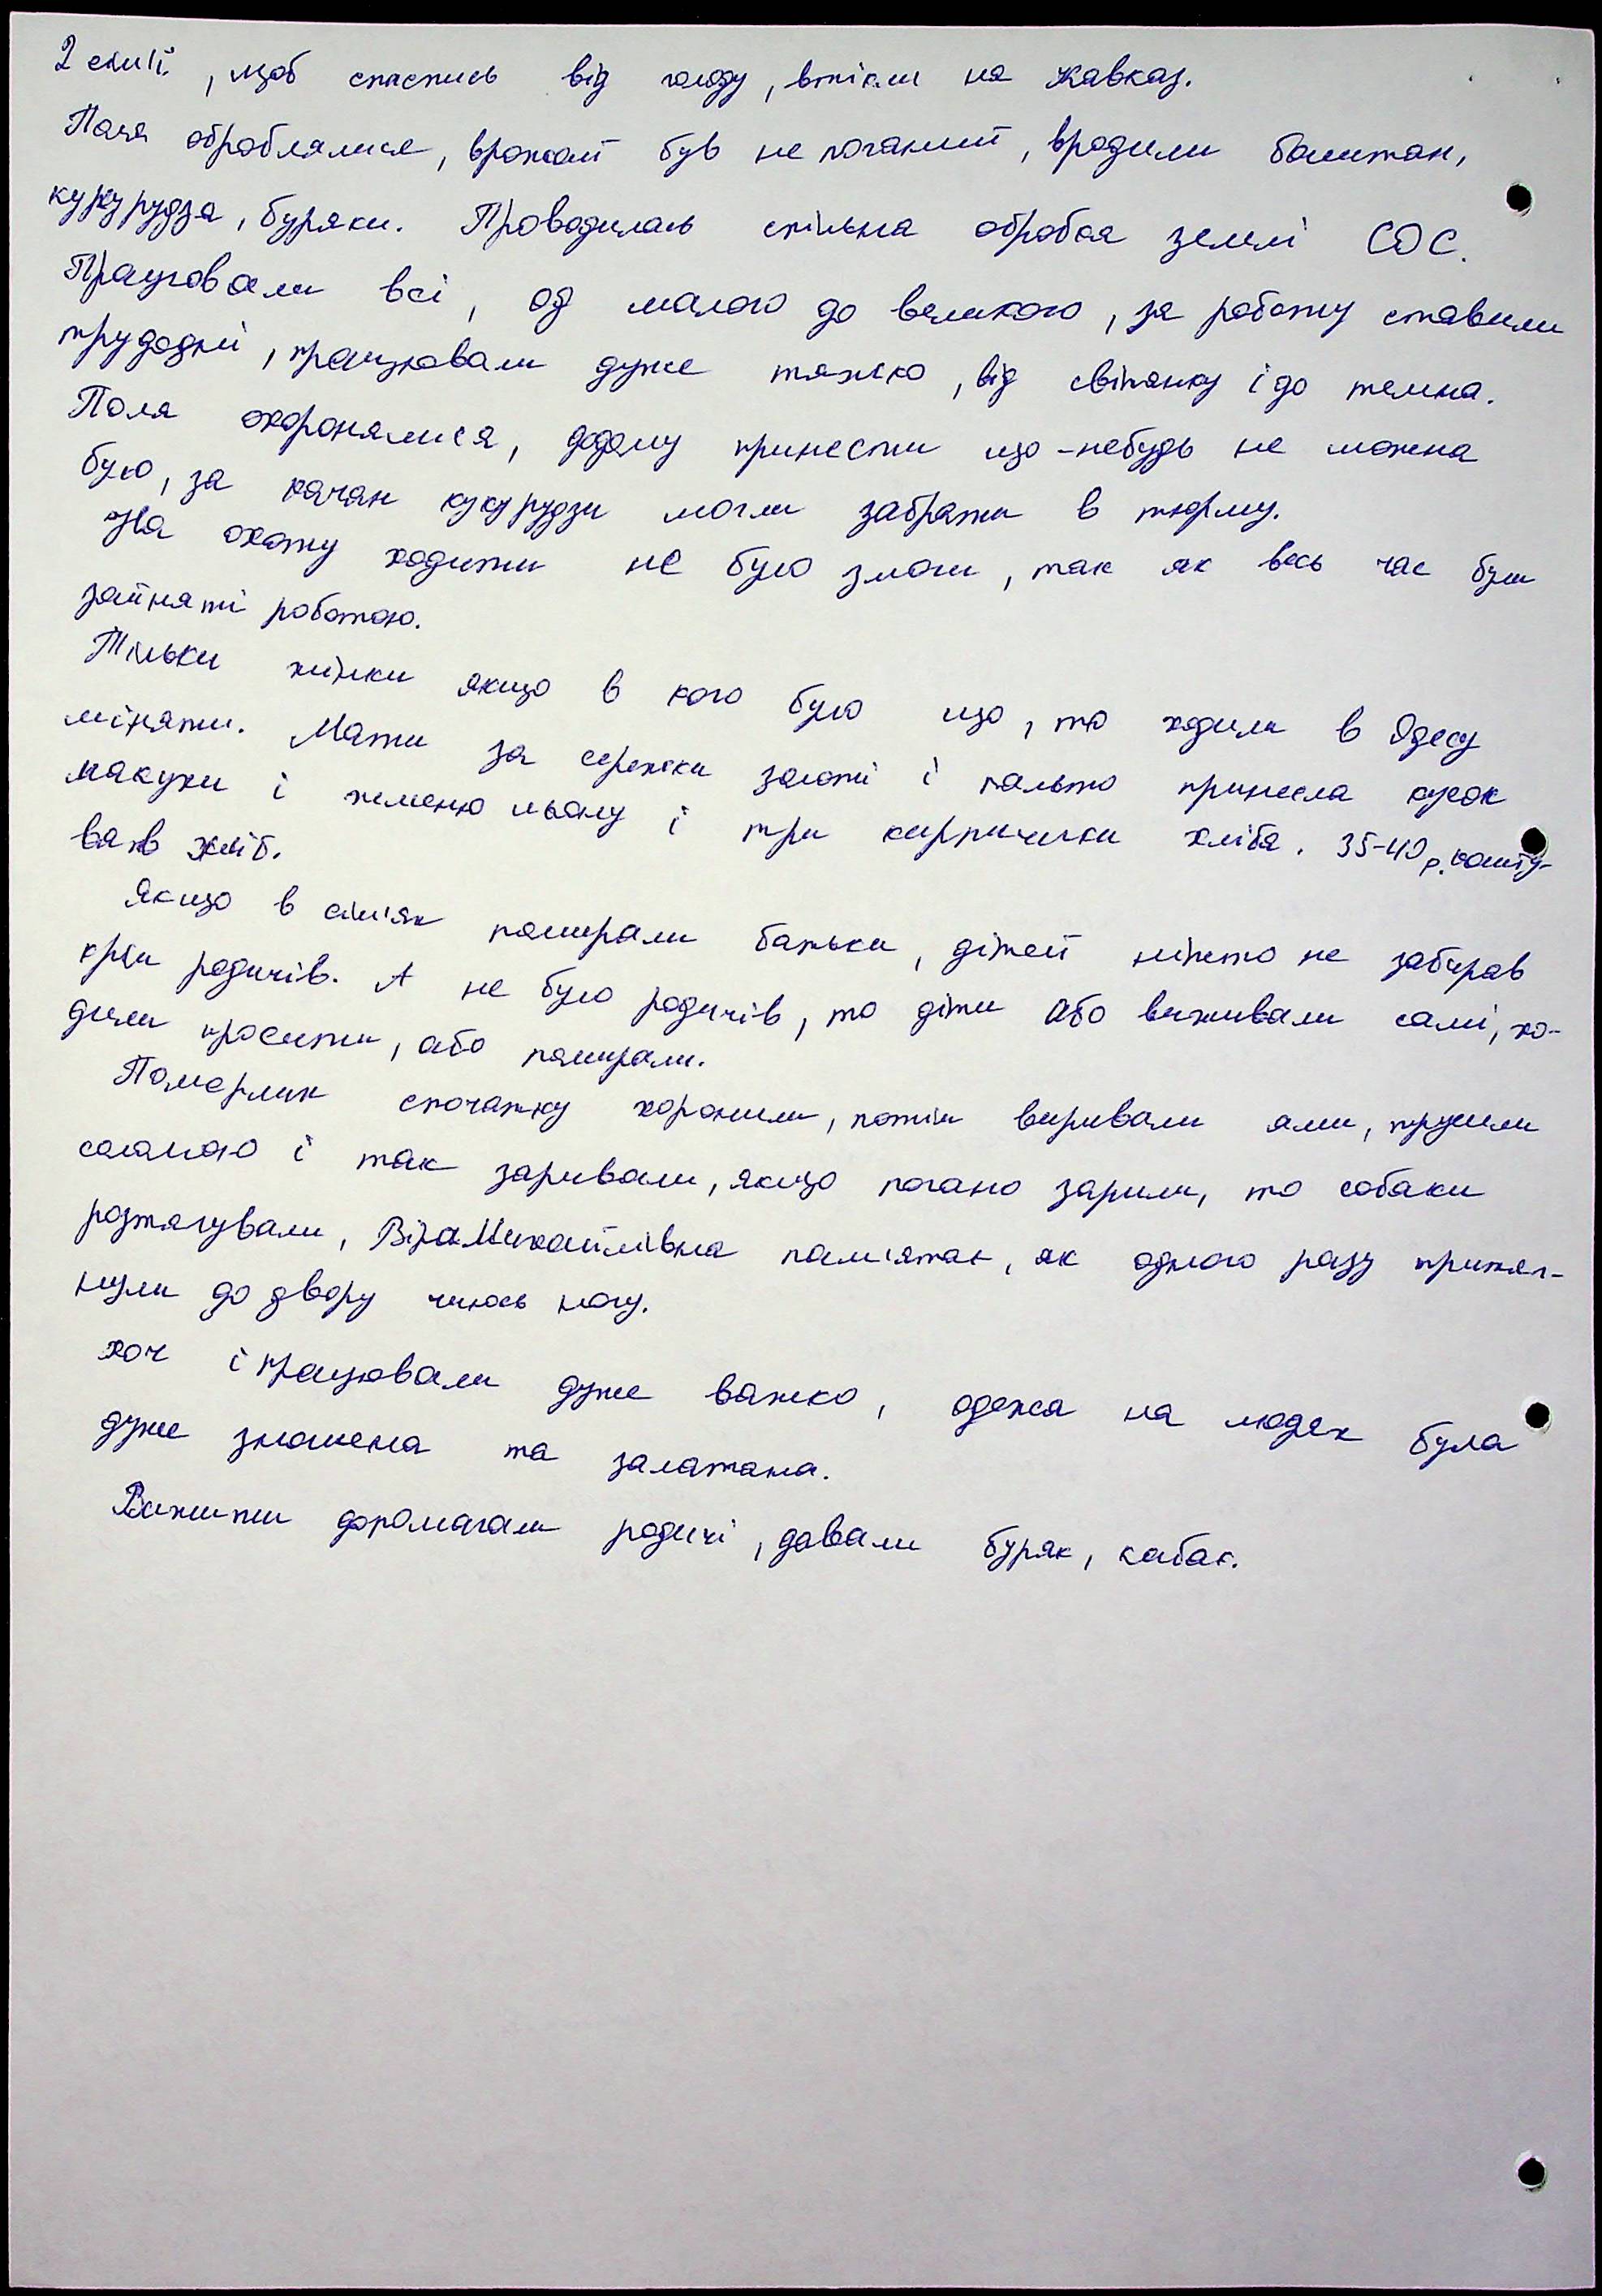 2 сім'ї, щоб спастись від голоду, втікли на Кавказ.
Поля оброблялися, врожай був не поганий, вродили баштан,
кукурудза, буряки. Проводилась спільна обробка землі СОС.
Працювали всі, од малого до великого, за роботу ставили
трудодні, працювали дуже тяжко, від світанку і до темна.
Поля охоронялися, додому принести що-небудь не можна
було, за качан кукурудзи могли забрати в тюрму.
На охоту ходити не було змоги, так як весь час були
зайняті роботою.
Тільки жінки якщо в кого було що, то ходили в Одесу
міняти. Мати за сережки золоті і пальто принесла кусок
макухи і жменю льону і три кирпичики хліба. 35-40 р. кошту-
вав хліб.
Якщо в сім'ях помирали батьки, дітей ніхто не забирав
крім родичів. А не було родичів, то діти або виживали самі, хо-
дили просити, або помирали.
Померлих спочатку хоронили, потім виривали ями, трусили
соломою і так заривали, якщо погано зарили, то собаки
розтягували, Віра Михайлівна пам'ятає, як одного разу притяг-
нули до двору чиюсь ногу.
Хоч і працювали дуже важко, одежа на людях була
дуже зношена та залатана.
Вижити допомагали родичі, давали буряк, кабак.